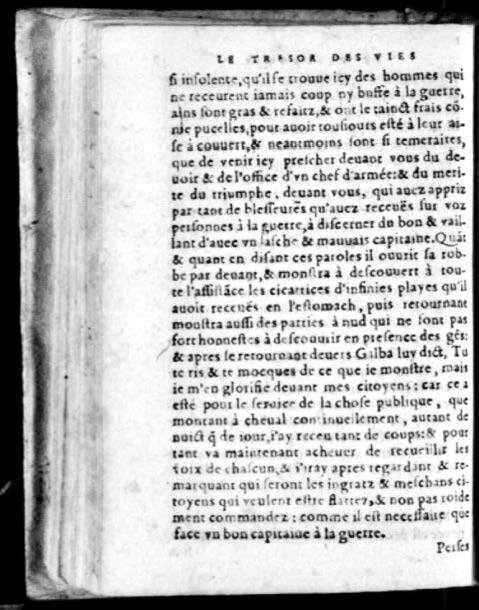 LE TRESOR DES VIES
si insolente, qu'il se trouue icy des hommes qui
ne receurent iamais coup ny buffe à la guerre,
ains sont gras & refaitz, & ont le tainct frais cõ-
me pucelles, pour auoir tousiours esté à leur ai-
se à couuert, & neantmoins sont si temeraires,
que de venir icy prescher deuant vous du de-
uoir & de l'office d'vn chef d'armée: & du meri-
te du triumphe, deuant vous, qui auez appriz
par tant de blesseures qu'auez receuës sur voz
personnes à la guerre, à discerner du bon & vail-
lant d'auec vn lasche & mauuais capitaine. Quãt
& quant en disant ces paroles il ouurit sa rob-
be par deuant, & monstra à descouuert à tou-
te l'assistãce les cicatrices d'infinies playes qu'il
auoit receuës en l'estomach, puis retournant
monstra aussi des parties à nud qui ne sont pas
fort honnestes à descouurir en presence des gẽs:
& apres se retournant deuers Gilba luy dict, Tu
te ris & te mocques de ce que ie monstre, mais
ie m'en glorifie deuant mes citoyens: car ce a
esté pour le seruice de la chose publique, que
montant à cheual continuellement, autant de
nuict q̃ de iour, i'ay receu tant de coups: & pour
tant va maintenant acheuer de recueillir les
voix de chascun, & i'iray apres regardant & re-
marquant qui seront les ingratz & meschans ci-
toyens qui veulent estre flattez, & non pas roide
ment commandez: comme il est necessaire que
face vn bon capitaine à la guerre.
Perses